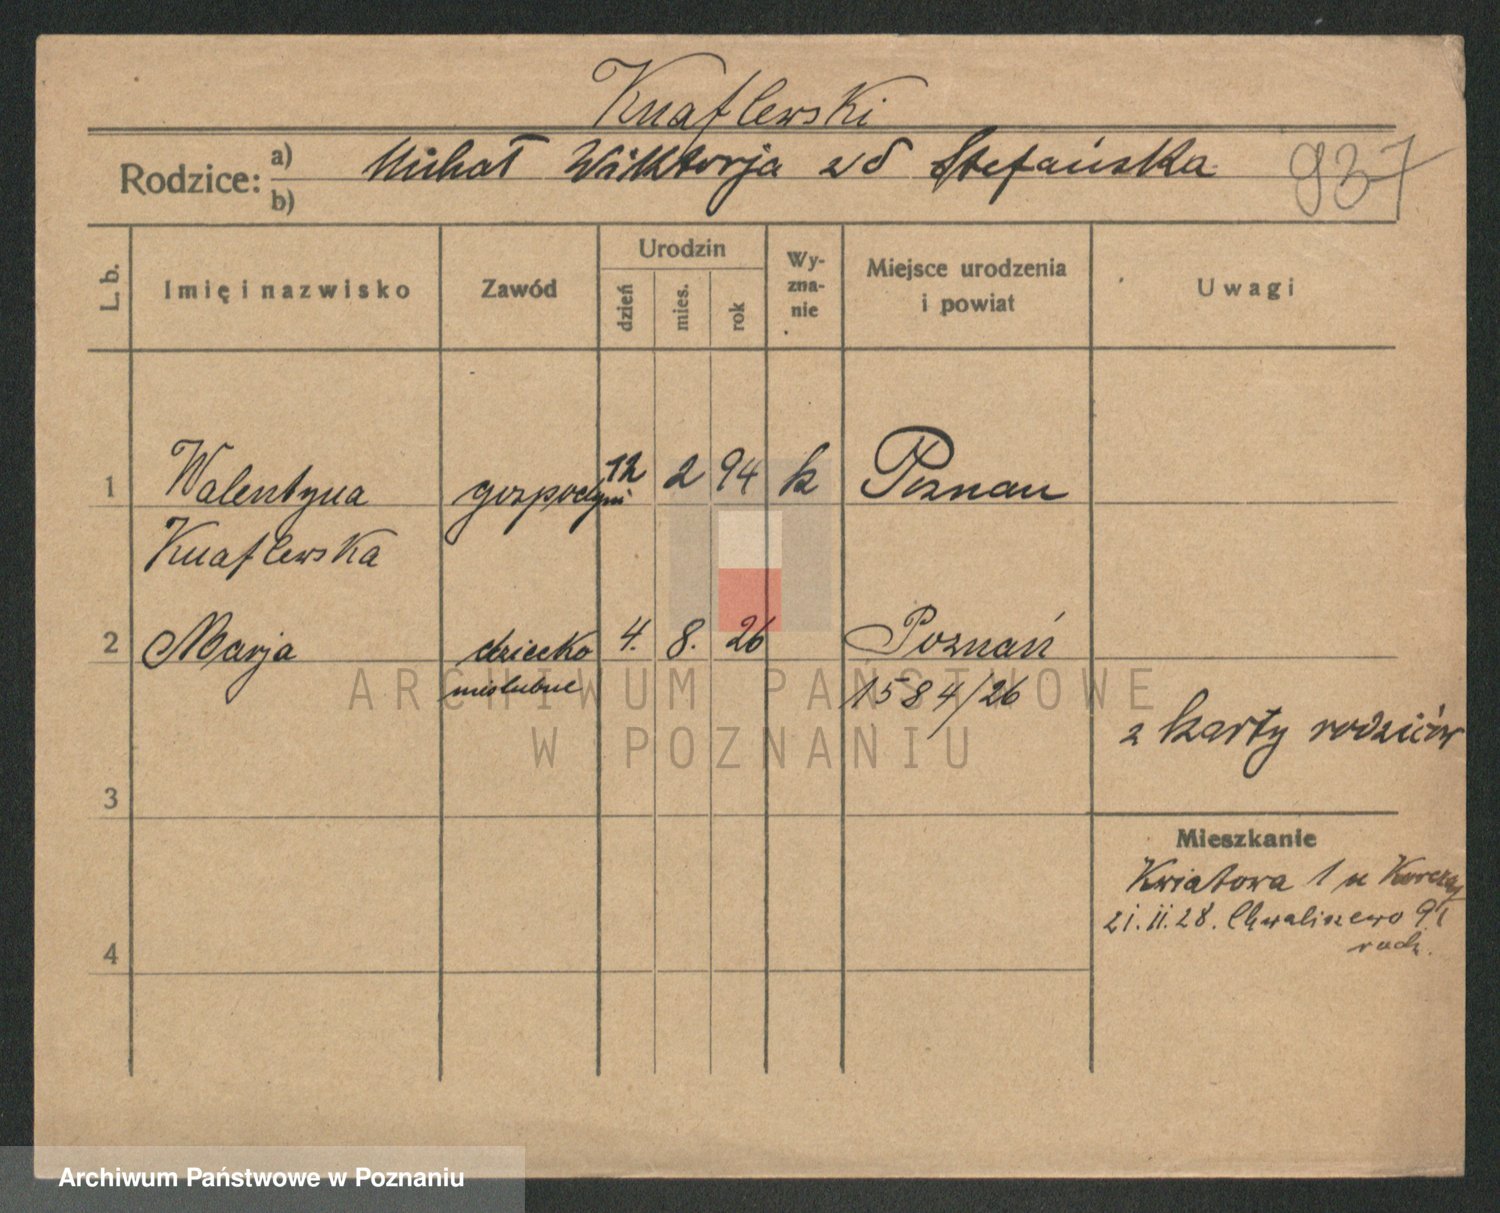 Knaflewski
Rodzice: a) Michał Wiktorja zd Stefańska 937
b)
L. b. Imię i nazwisko Zawód Urodzin dzień mies. rok Wy-zna-nie Miejsce urodzenia i powiat Uwagi
1 Walentyna gospodyni 12 2 94 k Poznan
Knaflewska
2 Marja dziecko 4. 8. 26 Poznań
nieślubne 1584/26
z karty rodziców
3
Mieszkanie
Kwiatowa 1 u
21.II.28. Chwaliszewo
4
ARCHIWUM PAŃSTWOWE
W POZNANIU
Archiwum Państwowe w Poznaniu